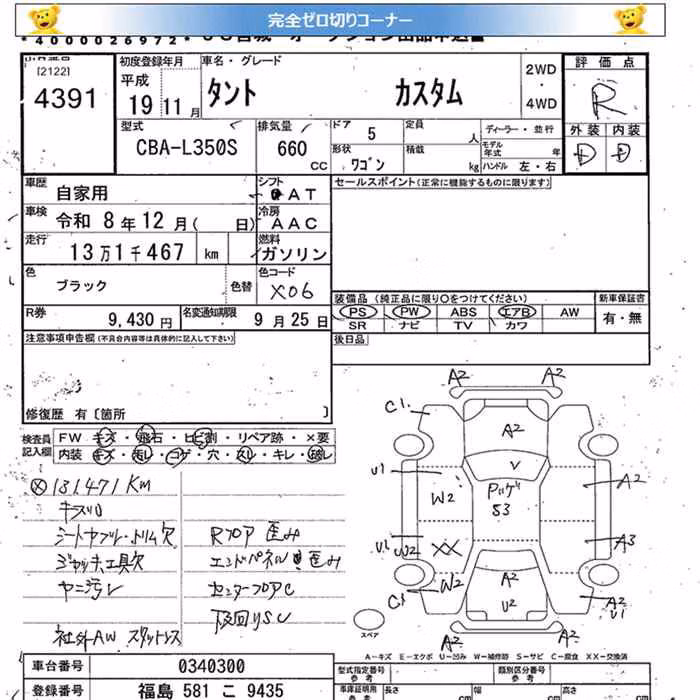 完全ゼロ切りコーナー
*4000026972*
[2122]
4391
初度登録年月
平成
19年11月
車名・グレード
タント カスタム
2WD
・
4WD
評価点
R
外装 内装
D D
型式
CBA-L350S
排気量
660
CC
ドア 5
形状
ワゴン
定員
人
積載
kg
ディーラー・並行
モデル年式 年
ハンドル 左・右
車歴 自家用
シフト AT
セールスポイント(正常に機能するものに限ります)
車検 令和 8年12月( 日)
冷房 AAC
走行 13万1千467 km
燃料 ガソリン
色 ブラック
色替
色コード X06
装備品 (純正品に限り○をつけてください)
新車保証書
PS PW ABS エアB AW
有・無
SR ナビ TV カワ
R券 9,430円
名変通知期限 9月25日
注意事項申告欄(不具合内容等は具体的に記入して下さい)
後日品
修復歴 有〔箇所 〕
検査員記入欄
FW キズ・飛石・ヒビ割・リペア跡・×要
内装 キズ・モレ・コゲ・穴・スレ・キレ・破レ
131471KM
シートヤブレ・トリム欠
ジャッキ、工具欠
ヤニ汚レ
社外AW スタットレス
Rフロア歪み
エンドパネル歪み
センターフロアC
下回りSU
A2 A2
C1.
A2
U1
W2
V
A2
U1
W2
XX
A3
C1
W2
A2
U2
A2
U1
A2 A2
スペア
A-キズ E-エクボ U-凹み W-補修跡 S-サビ C-腐食 XX-交換済
車台番号 0340300
登録番号 福島 581 こ 9435
型式指定番号
参考
類別区分番号
参考
車庫証明用
参考
長さ cm
幅 cm
高さ